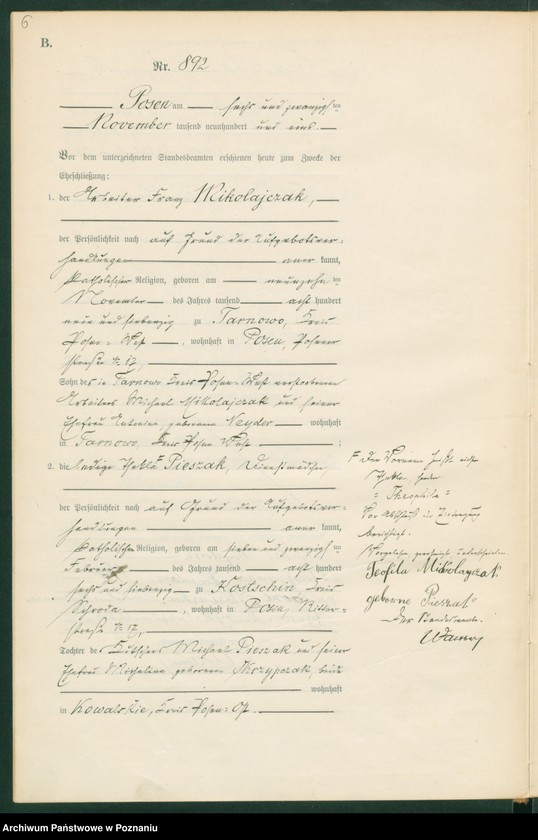 6
B.
Nr. 892
Posen am sechs und zwanzigsten
November tausend neunhundert und eins.
Vor dem unterzeichneten Standesbeamten erschienen heute zum Zwecke der
Eheschließung:
1. der Arbeiter Franz Mikolajczak,
der Persönlichkeit nach auf Grund der Aufgebotsver=
handlungen anerkannt,
katholischer Religion, geboren am neunzehnten
November des Jahres tausend acht hundert
neun und siebenzig zu Tarnowo, Kreis
Posen=West, wohnhaft in Posen, Posener
straße № 17,
Sohn des in Tarnowo Kreis Posen=West verstorbenen
Arbeiters Michael Mikolajczak und seiner
Ehefrau Antonina, geborenen Neyder wohnhaft
in Tarnowo, Kreis Posen West ;
2. die ledige Thekla F Pieszak, Dienstmädchen,
der Persönlichkeit nach auf Grund der Aufgebotsver=
handlungen anerkannt,
katholischer Religion, geboren am sieben und zwanzigsten
Februar des Jahres tausend acht hundert
sechs und siebenzig zu Kostschin, Kreis
Schroda, wohnhaft in Posen, Ritter=
straße № 17,
Tochter des Kutschers Michael Pieszak und seiner
Ehefrau Michalina geborenen Skrzypczak, beide
wohnhaft
in Kowalskie, Kreis Posen=Ost.
F Der Vorname heißt nicht
Thekla sondern
"Theophila"
Vor Abschluß der
berichtigt.
Vorgelesen, genehmigt, unterschrieben
Teofila Mikolajczak
geborene Pieszak
Der Standesbeamte.
Archiwum Państwowe w Poznaniu